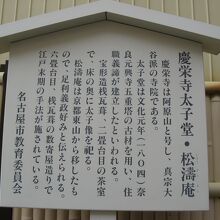 慶栄寺太子堂・松濤庵
慶栄寺は阿原山と号し、真宗大
谷派の寺院である。
太子堂は文化元年（一八〇四）奈
良元興寺五重塔の古材を用い、住
職義諦が建立したといわれる。
宝形造桟瓦葺、二畳台目の茶室
で、床の奥に太子像を祀る。
松濤庵は京都東山から移したも
ので、足利義政好みと伝えられる。
六畳台目、桟瓦葺の数寄屋造りで
江戸末期の手法が施されている。
名古屋市教育委員会